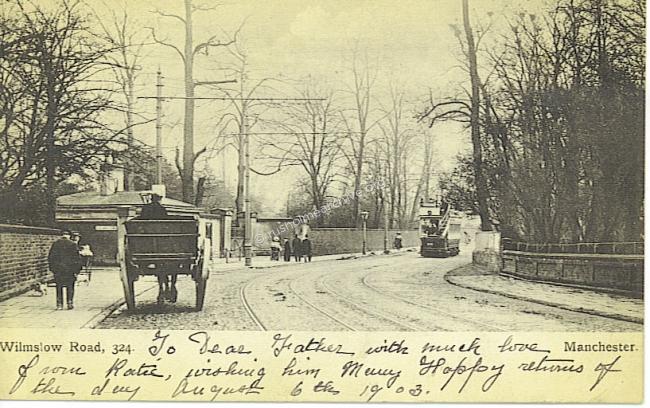 Wilmslow Road, 324. To Dear Father with much love Manchester.
from Katie, wishing him Many Happy returns of
the day August 6th 1903.